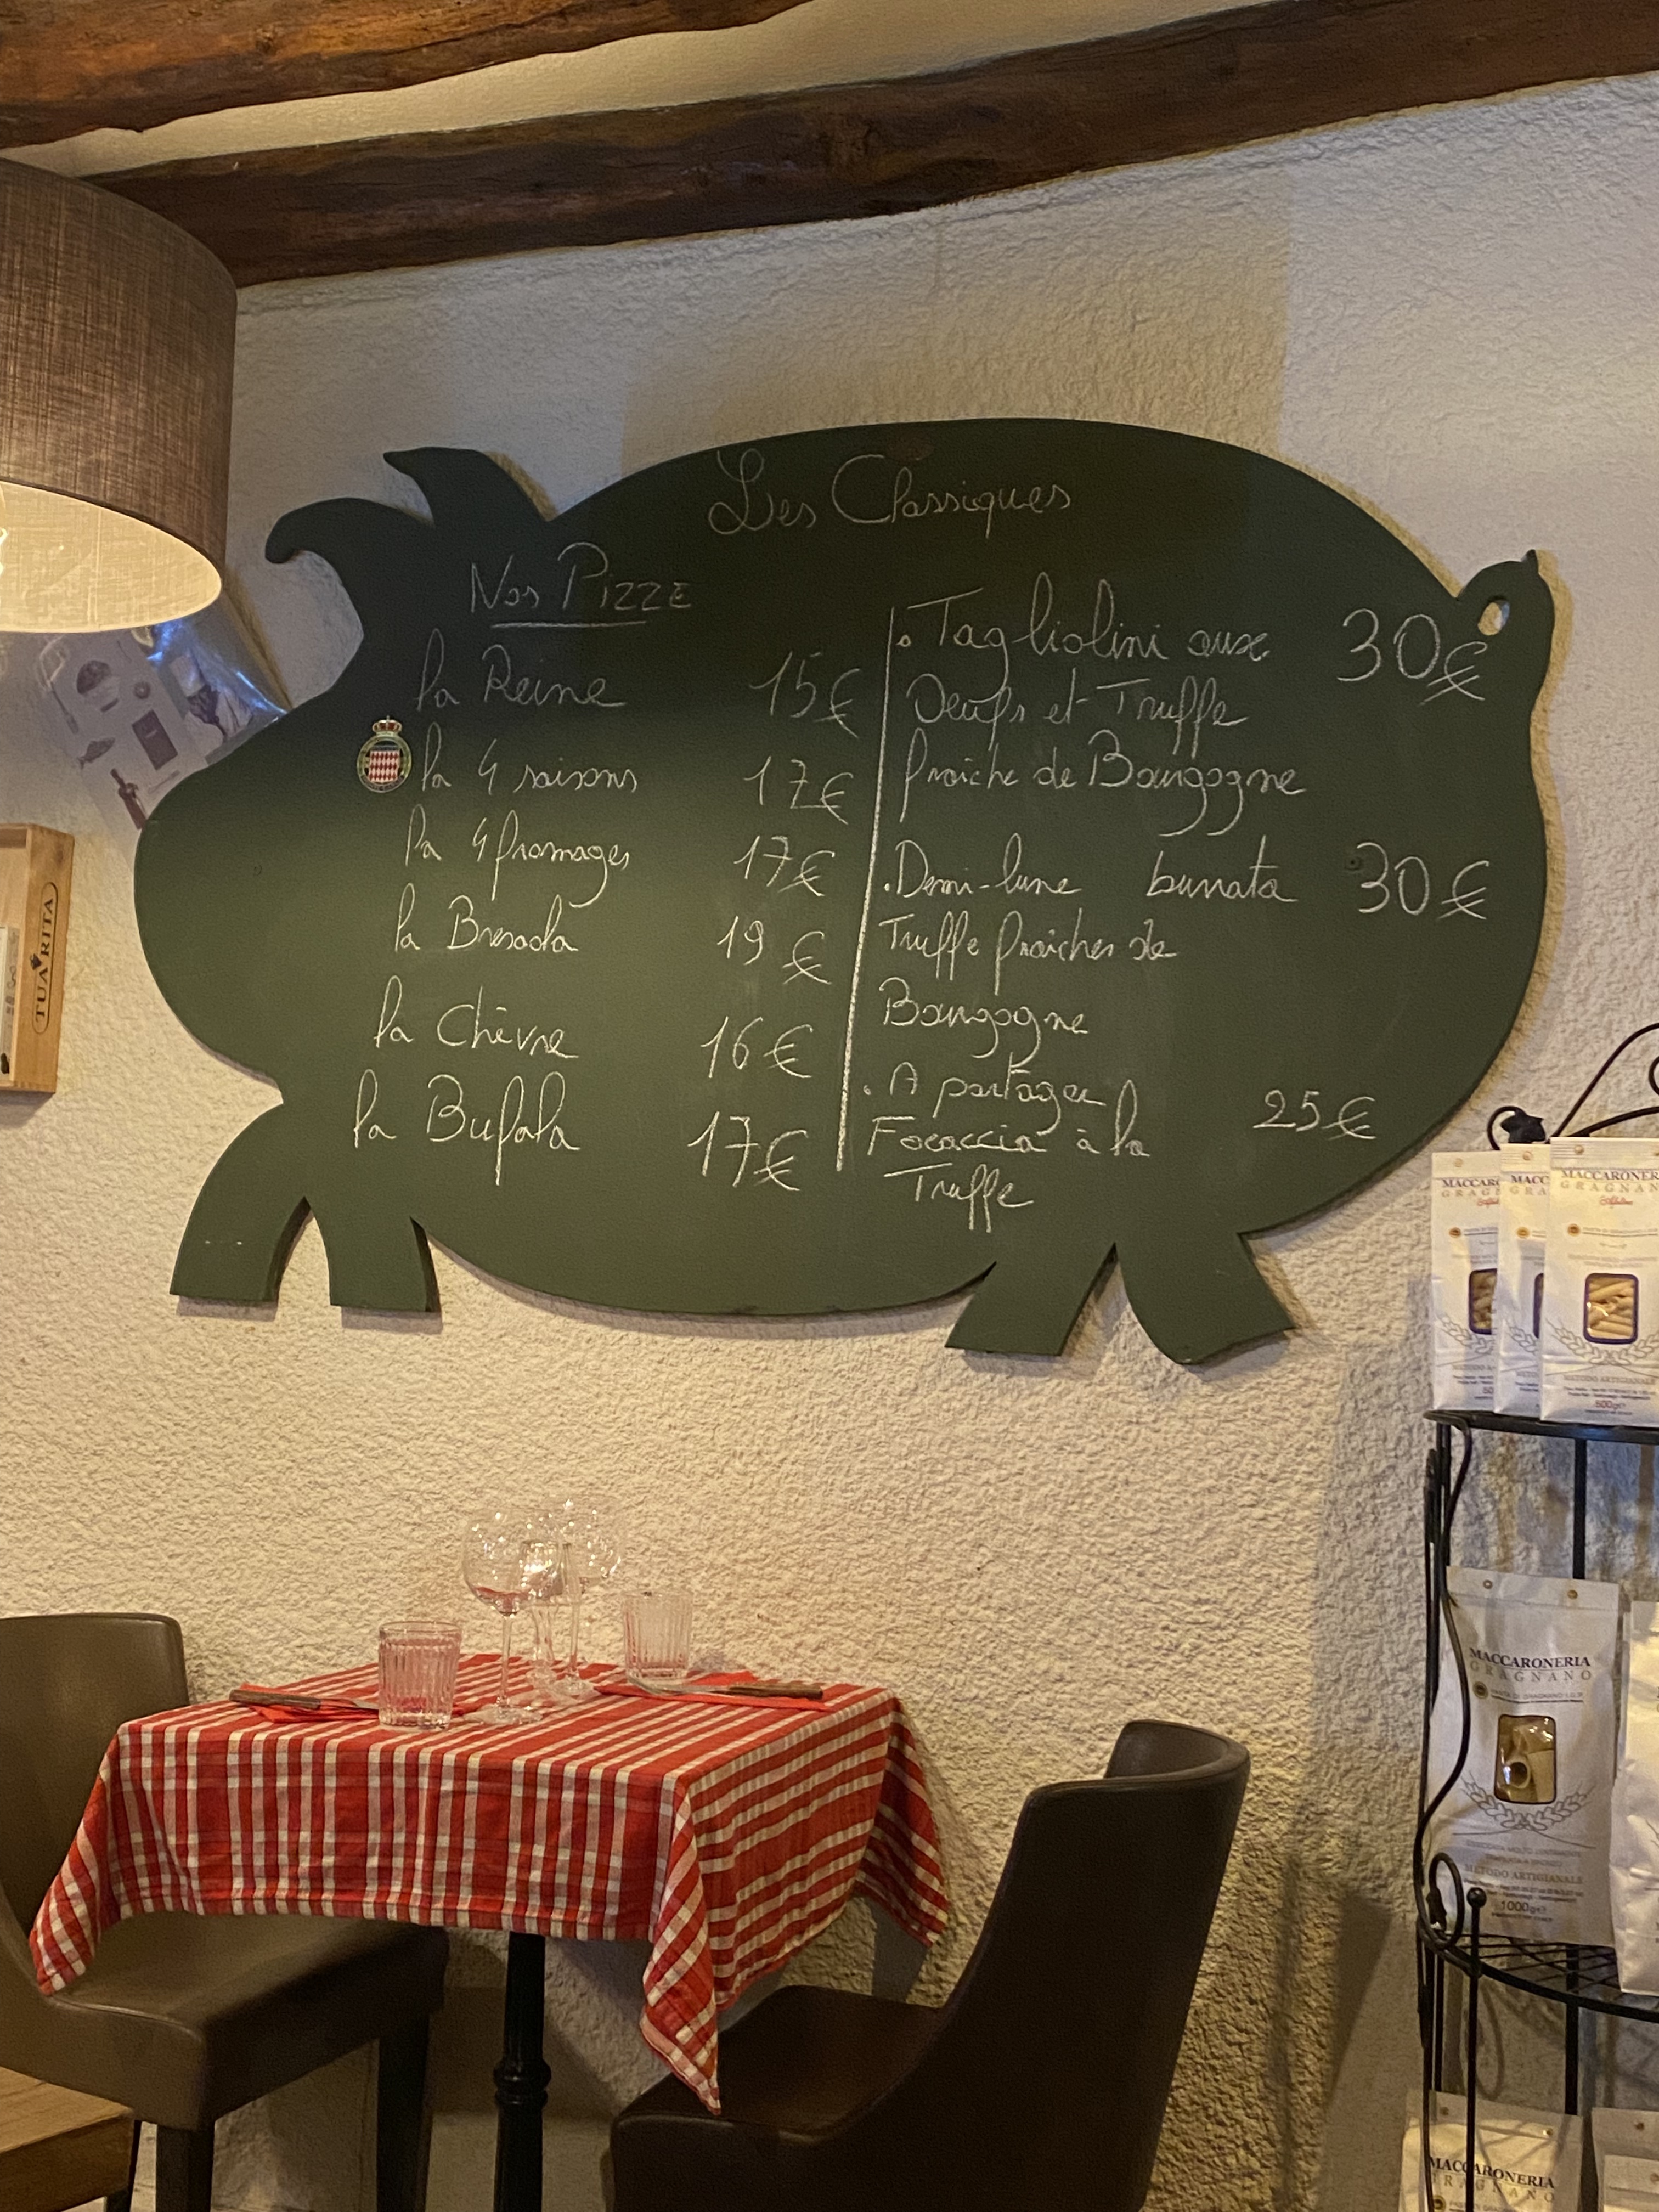 Les Classiques
Nos PIZZE
la Reine 15€
la 4 saisons 17€
la 4 fromages 17€
la Bresaola 19€
la Chèvre 16€
la Bufala 17€
Tagliolini aux 30€
Oeufs et Truffe
fraîche de Bourgogne
Demi-lune burrata 30€
Truffe fraîches de
Bourgogne
A partager
Focaccia à la 25€
Truffe
TUA RITA
MACCARONERIA
GRAGNANO
METODO ARTIGIANALE
500g
MACCARONERIA
GRAGNANO
METODO ARTIGIANALE
1000g
MACCARONERIA
GRAGNANO